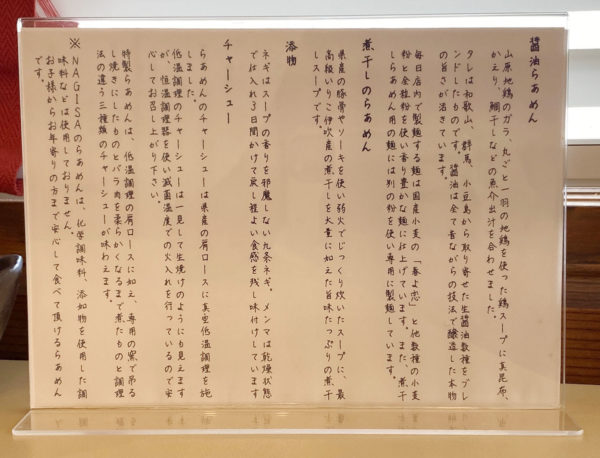 醤油らぁめん
山原地鶏のガラ、丸ごと一羽の地鶏を使った鶏スープに真昆布、
かえり、鯛干しなどの魚介出汁を合わせました。
タレは和歌山、群馬、小豆島から取り寄せた生醤油数種をブレ
ンドしたものです。醤油は全て昔ながらの技法で醸造した本物
の旨さが活きています。
毎日店内で製麺する麺は国産小麦の「春よ恋」と他数種の小麦
粉と全粒粉を使い香り豊かな麺に仕上げています。また、煮干
しらぁめん用の麺には別の粉を使い専用に製麺しています。
煮干しのらぁめん
県産の豚骨やソーキを使い弱火でじっくり炊いたスープに、最
高級いりこ伊吹産の煮干しを大量に加えた旨味たっぷりの煮干
しスープです。
添物
ネギはスープの香りを邪魔しない九条ネギ。メンマは乾燥状態
では入れ3日間かけて戻し程よい食感を残し味付けしています
チャーシュー
らぁめんのチャーシューは県産の肩ロースに真空低温調理を施
しました。
低温調理のチャーシューは一見して生焼けのようにも見えます
が、恒温調理器を使い滅菌温度での火入れを行っているので安
心してお召し上がり下さい。
特製らぁめんは、低温調理の肩ロースに加え、専用の窯で吊る
し焼きにしたものとバラ肉を柔らかくなるまで煮たものと調理
法の違う三種類のチャーシューが味わえます。
※NAGISAのらぁめんは、化学調味料、添加物を使用した調
味料などは使用しておりません。
お子様からお年寄りの方まで安心して食べて頂けるらぁめん
です。